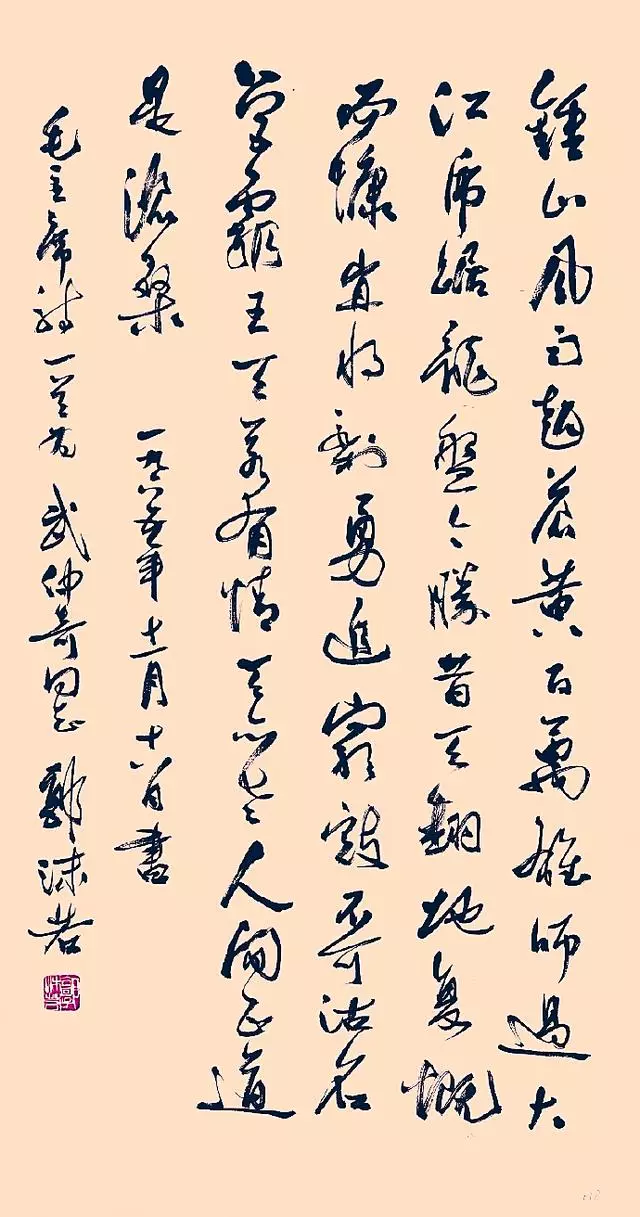 鍾山風雨起蒼黃百萬雄師過大
江虎踞龍盤今勝昔天翻地复慨
而慷宜将剩勇追窮寇不可沽名
學霸王天若有情天亦老人间正道
是滄桑 一九六五年十二月十八日書
毛主席詩一首为 武仲奇同志 郭沫若